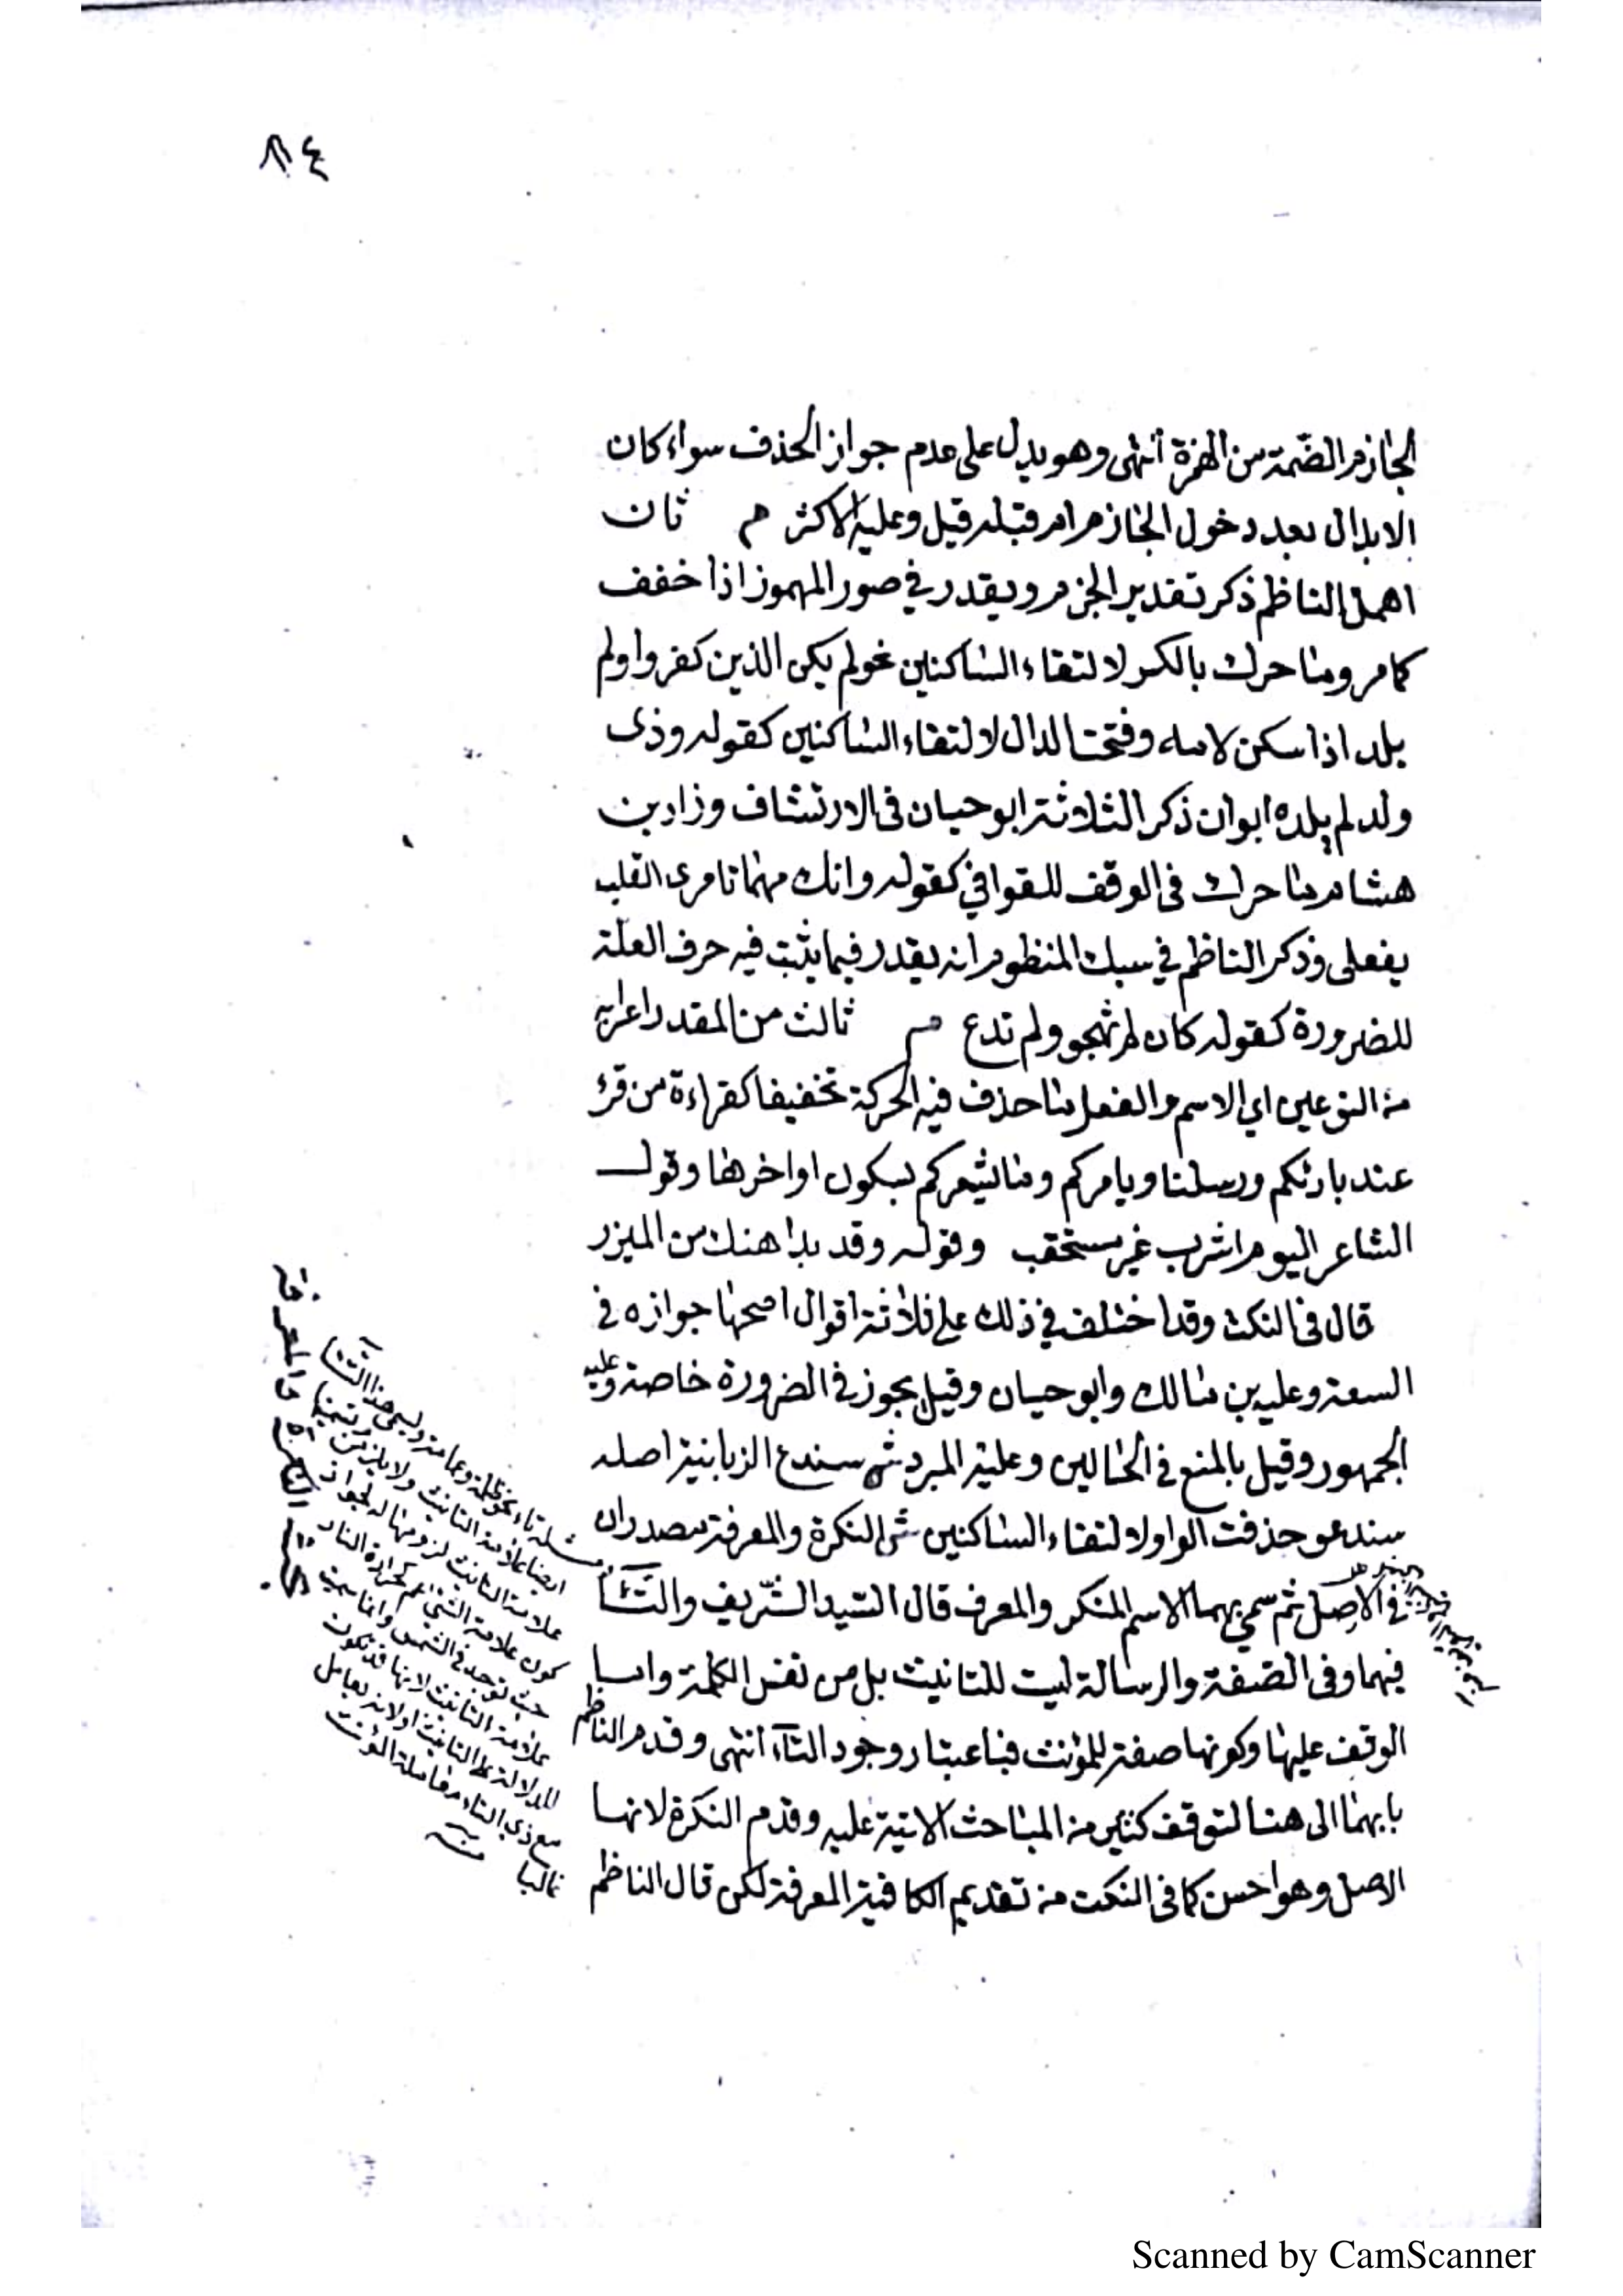 ٨٤
الجازم الضمة من الهمزة انتهى وهو يدل على عدم جواز الحذف سواء كان
الابدال بعد دخول الجازم ام قبله قيل وعليه الاكثر م ثان
اهمل الناظم ذكر تقدير الجزم ويقدر في صور المهموز اذا خفف
كما مر وما حرك بالكسر لالتقاء الساكنين نحو لم يكن الذين كفروا ولم
يلد اذا سكن لامه وفتحت الدال لالتقاء الساكنين كقوله وذى
ولد لم يلده ابوان ذكر الثلاثة ابو حيان في الارتشاف وزاد بن
هشام ما حرك في الوقف للقوافي كقوله وانك مهما تامرى القلب
يفعلى وذكر الناظم في سبك المنظوم انه يقدر فيما يثبت فيه حرف العلة
للضرورة كقوله كان لم تهجو ولم تدع م ثالث من المقدر اعرابه
من النوعين اي الاسم والفعل ما حذف فيه الحركة تخفيفا كقراءة من قرئ
عند بارئكم ورسلنا ويامركم وما يشعركم بسكون اواخرها وقول
الشاعر اليوم اشرب غير مستحقب وقوله وقد بدا هنك من الميزر
قال في النكت وقد اختلف في ذلك على ثلاثة اقوال اصحها جوازه في
السعة وعليه بن مالك وابو حيان وقيل يجوز في الضرورة خاصة وعليه
الجمهور وقيل بالمنع في الحالين وعليه المبرد ش سندع الزبانية اصله
سندعو حذفت الواو لالتقاء الساكنين ش النكرة والمعرفة مصدران
في الاصل ثم سمي بهما الاسم المنكر والمعرف قال السيد الشريف والتاء
فيهما وفى الصفة والرسالة ليت للتانيث بل من نفس الكلمة واما
الوقف عليها وكونها صفة للمؤنث فباعتبار وجود التاء انتهى وقدم الناظم
بابهما الى هنا لتوقف كثير من المباحث الاتية عليه وقدم النكرة لانها
الاصل وهو احسن كما في النكت من تقديم الكافية المعرفة لكن قال الناظم
تاء نحو ظلمة وعمامة وليسى هذا التاء
ايضا علامة التانيث ولا يلزم من
علامة التانيث لزومها له لجواز
كون علامة الشئ اعم كحرارة النار
حيث توجد في الشمس وانما سميت
علامة التانيث لانها قد تكون
للدلالة على التانيث اولانه يعامل
مع ذي التاء معاملة المؤنث
غالبا منه
Scanned by CamScanner